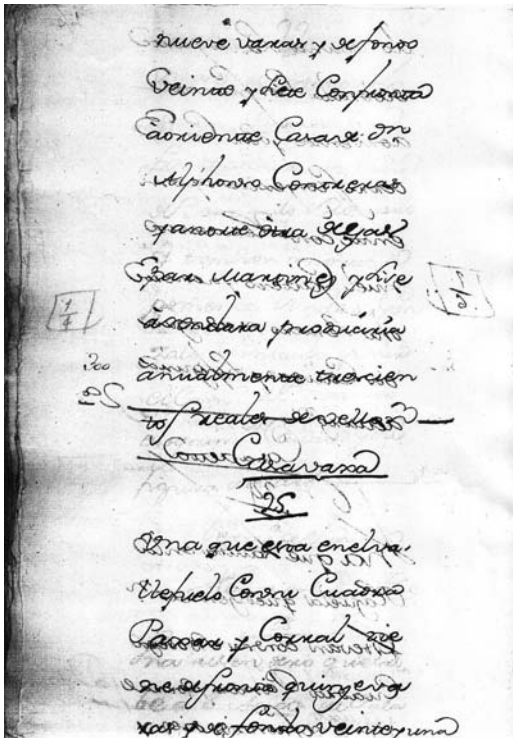 nueve varas y de fondo
Veinte y siete Confronta
à oriente Casas de Dn
Alphonso Contreras
y anorte otra de
Gaspar Martinez y si se
àrrendara produciria
ànualmente trecien
300
tos reales de vellon
Casa
25
Vna que esta en el va
rrhuelo con su Cuadra
Paxar y Corral tie
ne de frente quinze va
ras y de fondo veinte y una